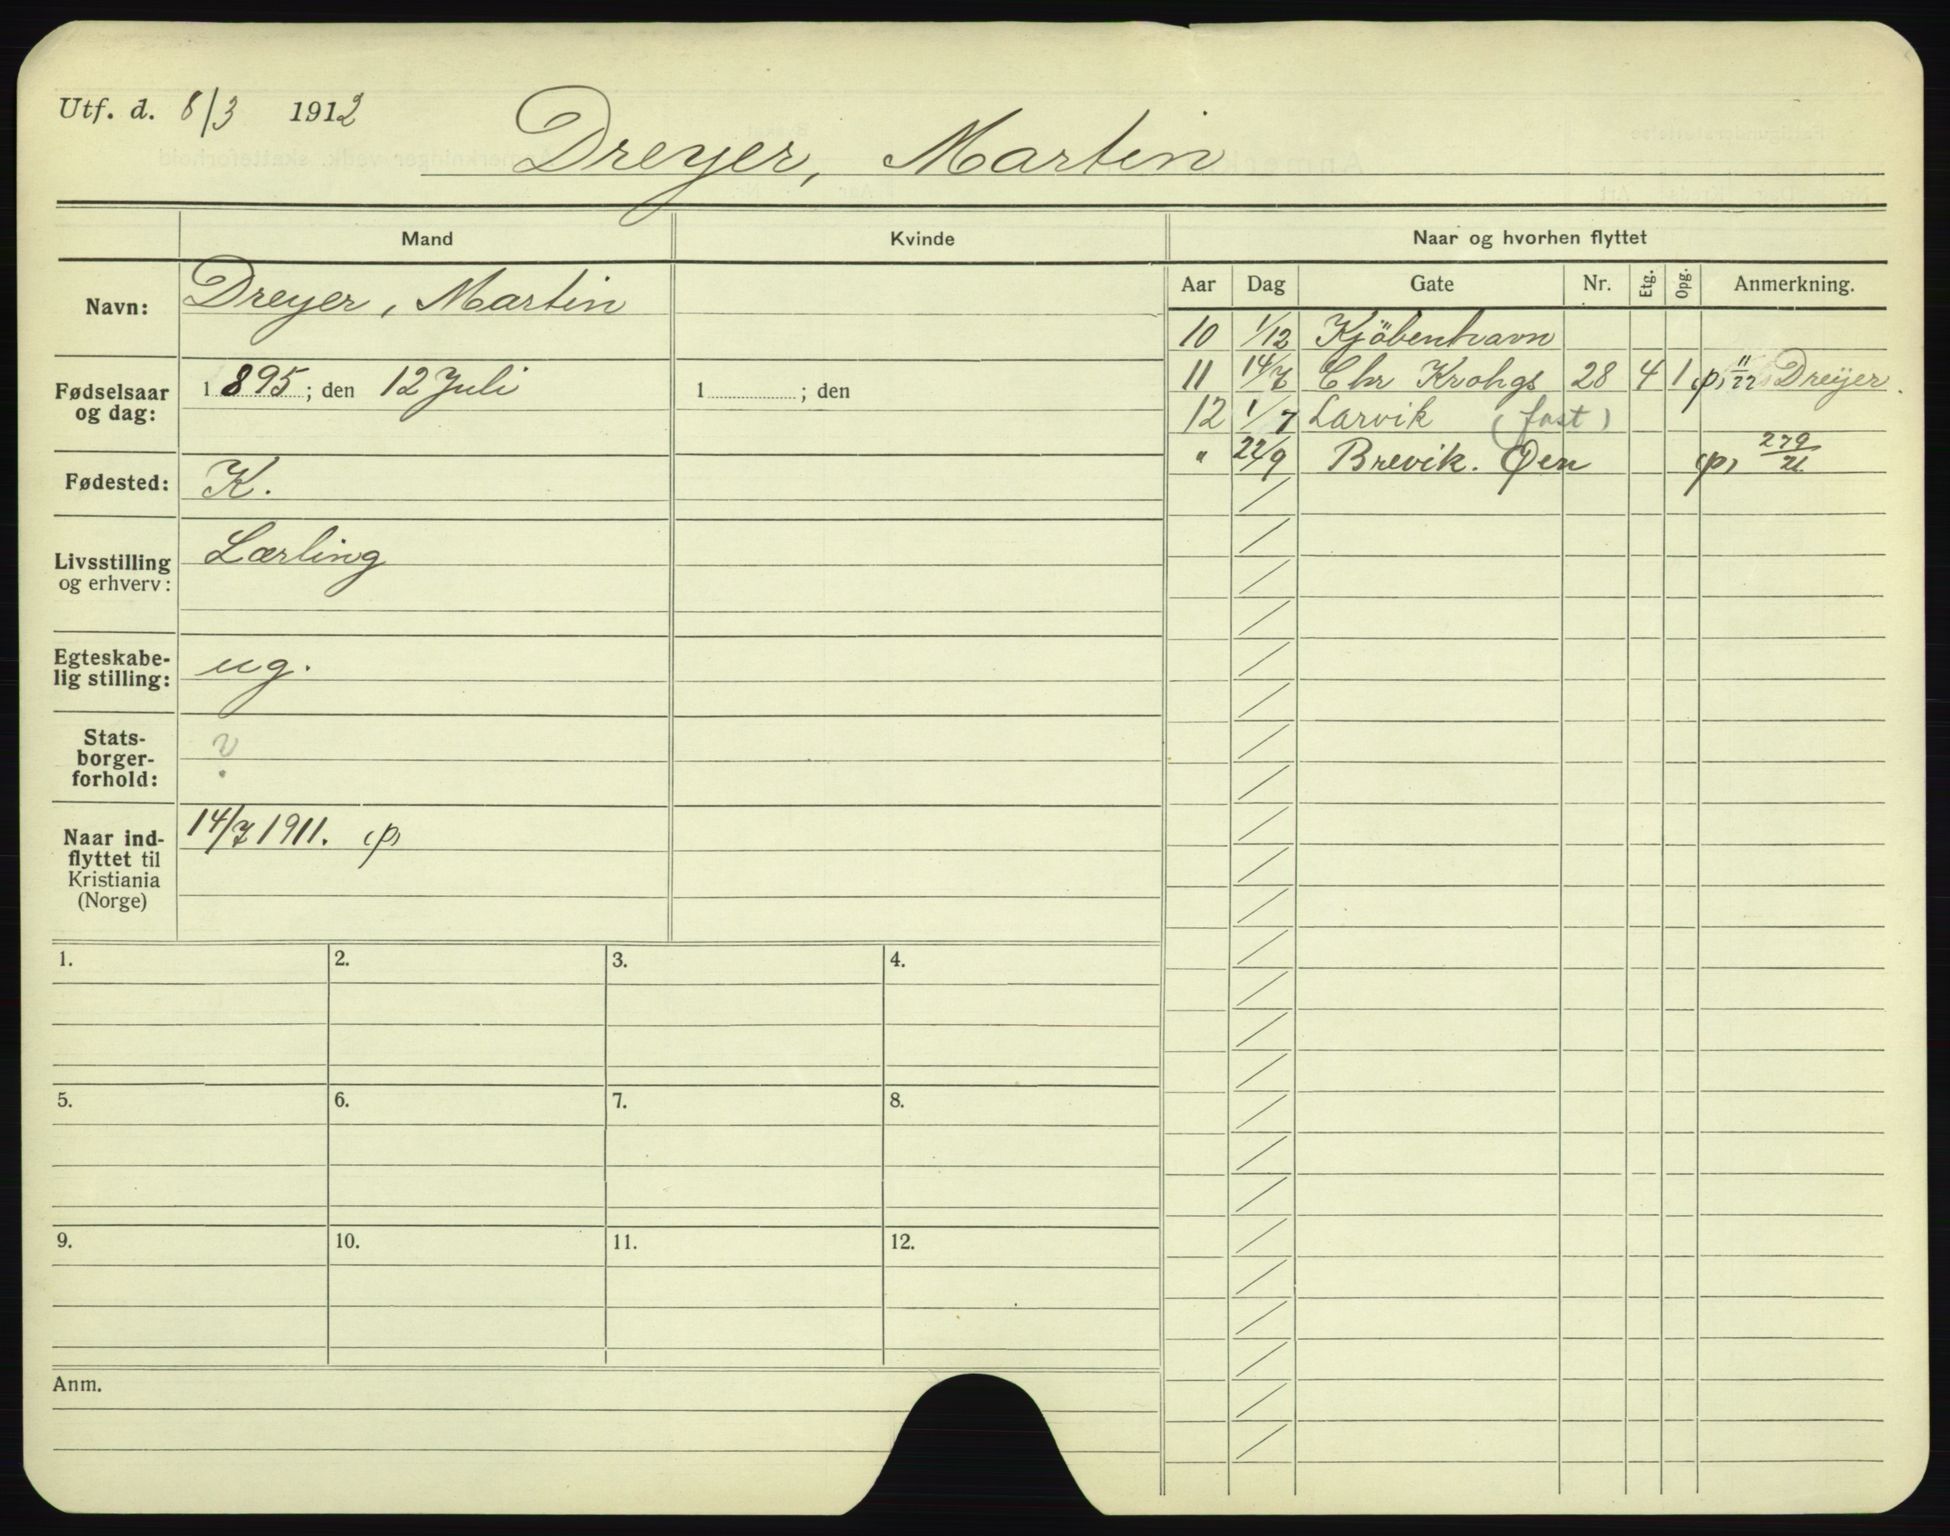 Utf. d. 8/3 1912
Dreyer, Martin
Mand
Kvinde
Navn: Dreyer, Martin
Fødselsaar og dag: 1895; den 12 Juli
1 ; den
Fødested: K.
Livsstilling og erhverv: Lærling
Egteskabe-
lig stilling: ug.
Stats-
borger-
forhold: ?
Naar ind-
flyttet til
Kristiania
(Norge) 14/7 1911. (p)
1. 2. 3. 4.
5. 6. 7. 8.
9. 10. 11. 12.
Anm.
Naar og hvorhen flyttet
Aar Dag Gate Nr. Etg. Opg. Anmerkning.
10 1/12 Kjöbenhavn
11 14/7 Chr Krohgs 28 4 1 (p) 11/22 Dreÿer.
12 1/7 Larvik (fast)
" 22/9 Brevik. Øen (p) 279/21